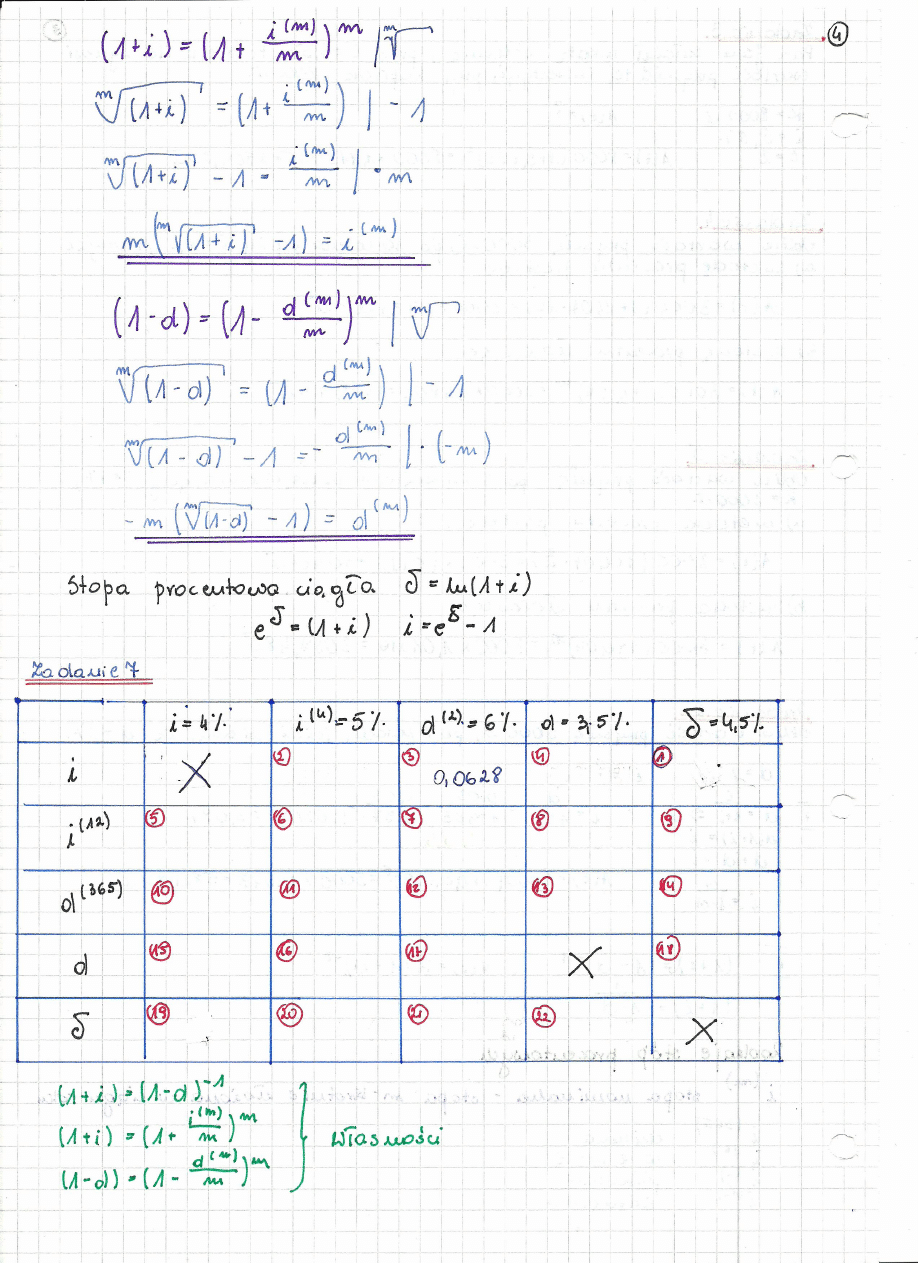 ④
(1+i) = (1 + i^(m)/m)^m | ᵐ√
ᵐ√(1+i) = (1 + i^(m)/m) | - 1
ᵐ√(1+i) - 1 = i^(m)/m | · m
m(ᵐ√(1+i) - 1) = i^(m)
(1-d) = (1 - d^(m)/m)^m | ᵐ√
ᵐ√(1-d) = (1 - d^(m)/m) | - 1
ᵐ√(1-d) - 1 = - d^(m)/m | · (-m)
- m (ᵐ√(1-d) - 1) = d^(m)
Stopa procentowa ciągła δ = ln(1+i)
e^δ = (1+i) i = e^δ - 1
Zadanie 7
i = 4% i^(4) = 5% d^(2) = 6% d = 3,5% δ = 4,5%
i X ② ③ 0,0628 ④ ①
i^(12) ⑤ ⑥ ⑦ ⑧ ⑨
d^(365) ⑩ ⑪ ⑫ ⑬ ⑭
d ⑮ ⑯ ⑰ X ⑱
δ ⑲ ⑳ ㉑ ㉒ X
(1+i) = (1-d)^-1
(1+i) = (1 + i^(m)/m)^m } Własności
(1-d) = (1 - d^(m)/m)^m